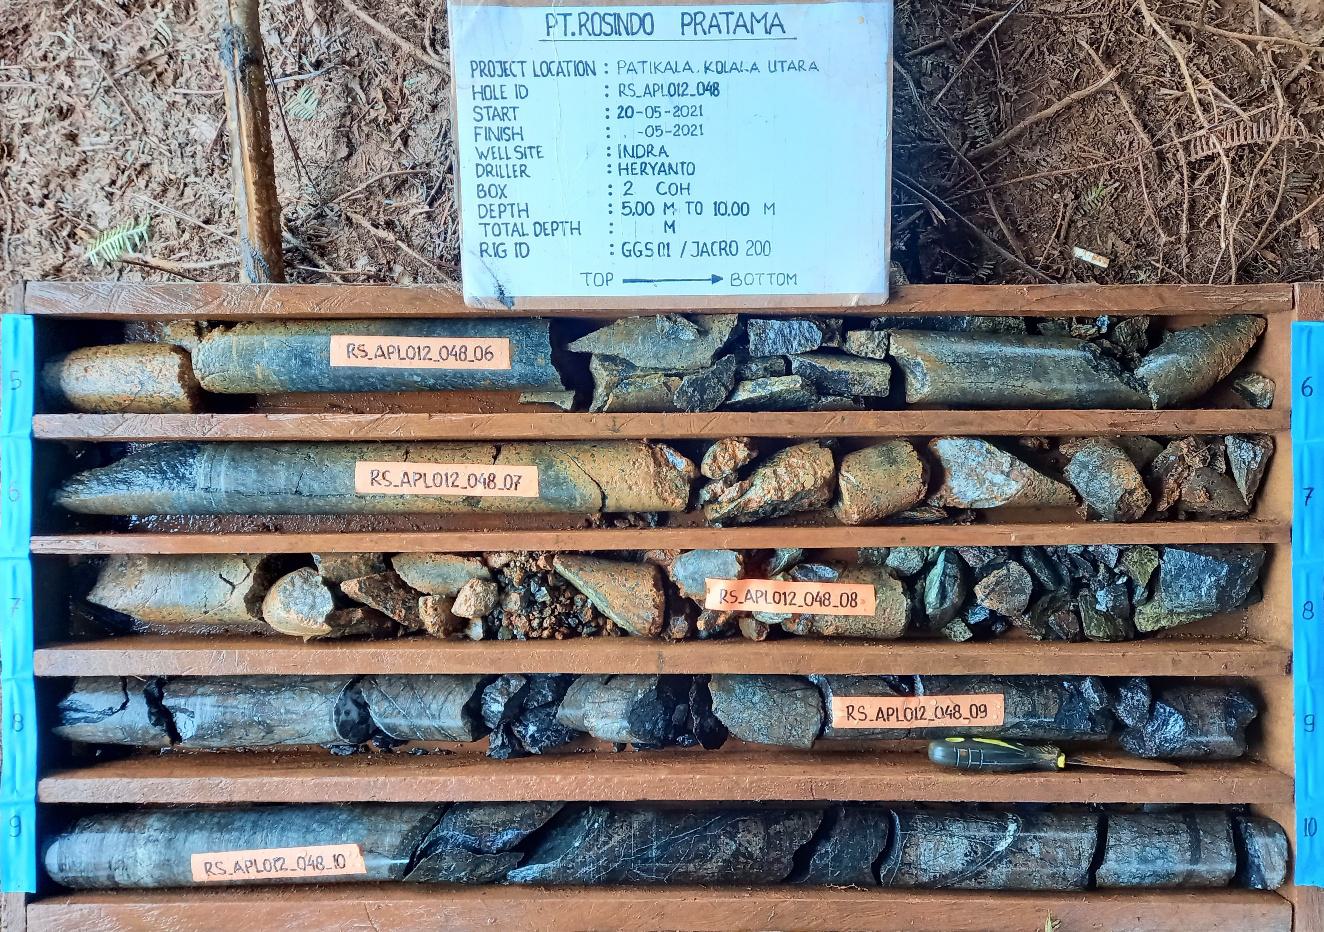 PT.ROSINDO PRATAMA
PROJECT LOCATION : PATIKALA, KOLAKA UTARA
HOLE ID : RS_APL012_048
START : 20-05-2021
FINISH : -05-2021
WELLSITE : INDRA
DRILLER : HERYANTO
BOX : 2 COH
DEPTH : 5.00 M TO 10.00 M
TOTAL DEPTH : M
RIG ID : GGS 01 / JACRO 200
TOP → BOTTOM
5 RS_APL012_048_06 6
6 RS_APL012_048_07 7
7 RS_APL012_048_08 8
8 RS_APL012_048_09 9
9 RS_APL012_048_10 10